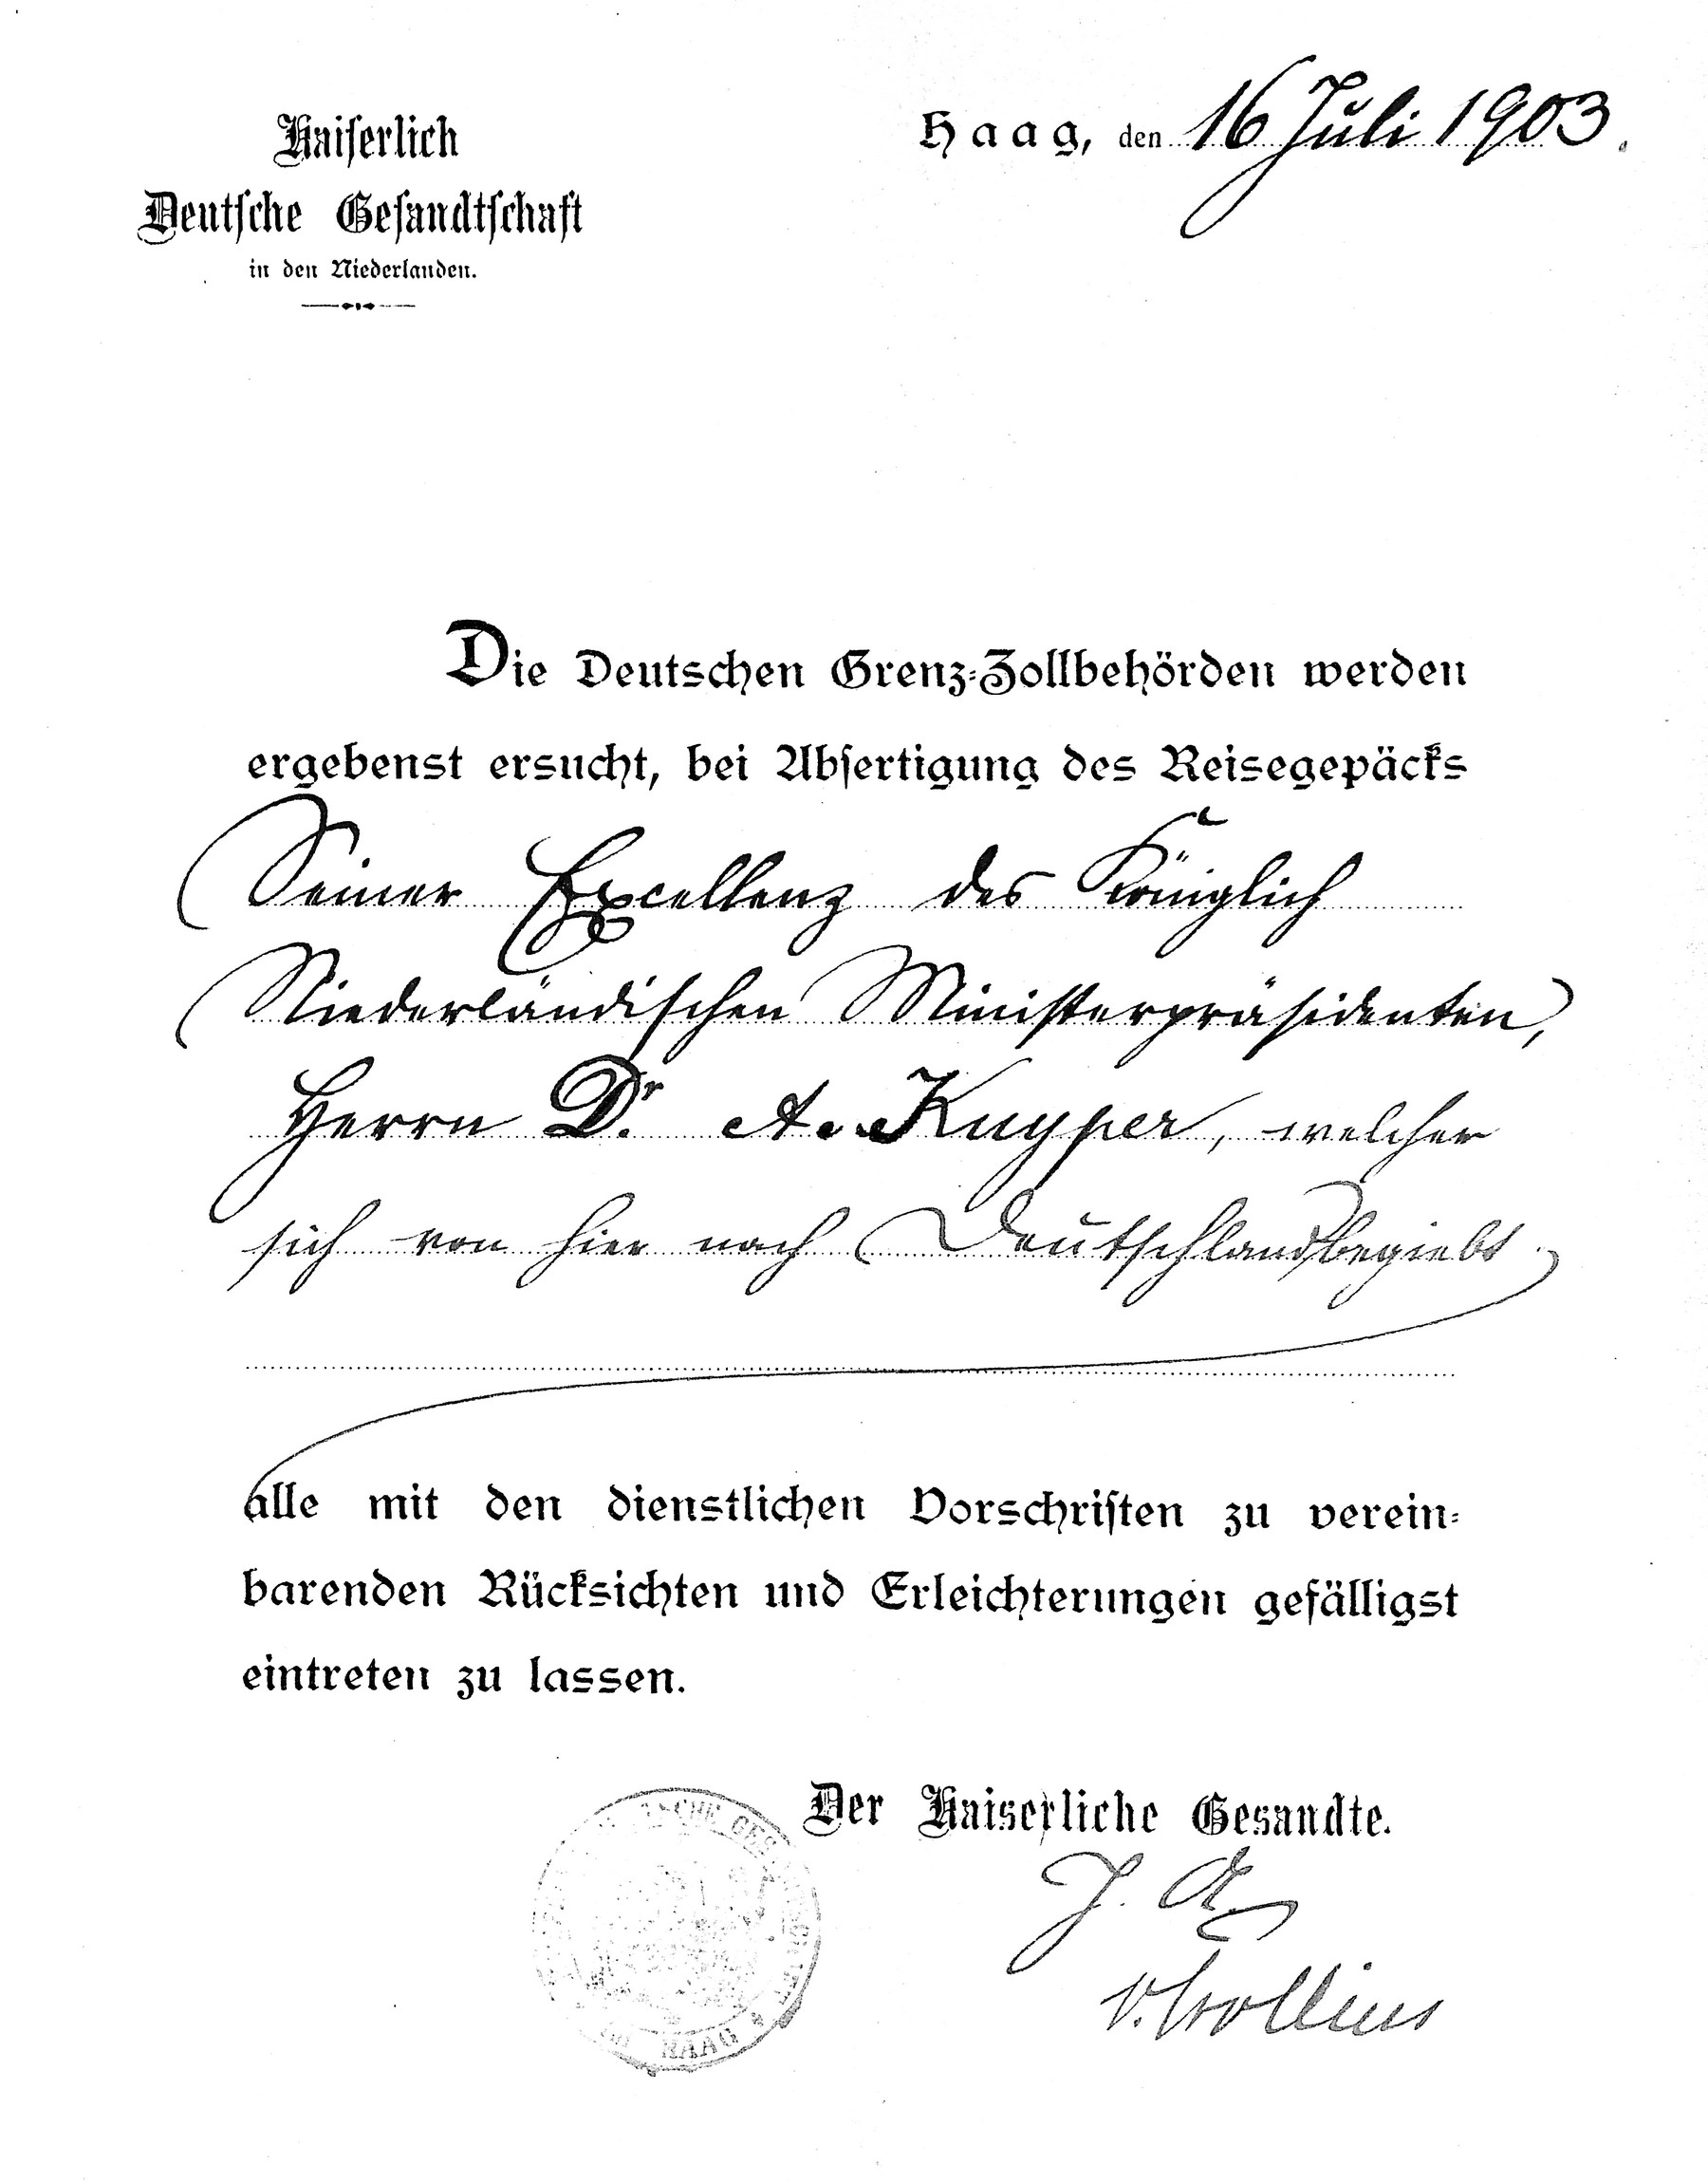 Kaiserlich
Deutsche Gesandtschaft
in den Niederlanden.
Haag, den 16 Juli 1903.
Die Deutschen Grenz-Zollbehörden werden
ergebenst ersucht, bei Abfertigung des Reisegepäcks
Seiner Excellenz des Königlich
Niederländischen Ministerpräsidenten,
Herrn Dr. A. Kuyper, welcher
sich von hier nach Deutschland begiebt.
alle mit den dienstlichen Vorschriften zu verein-
barenden Rücksichten und Erleichterungen gefälligst
eintreten zu lassen.
Der Kaiserliche Gesandte.
J. A.
HAAG